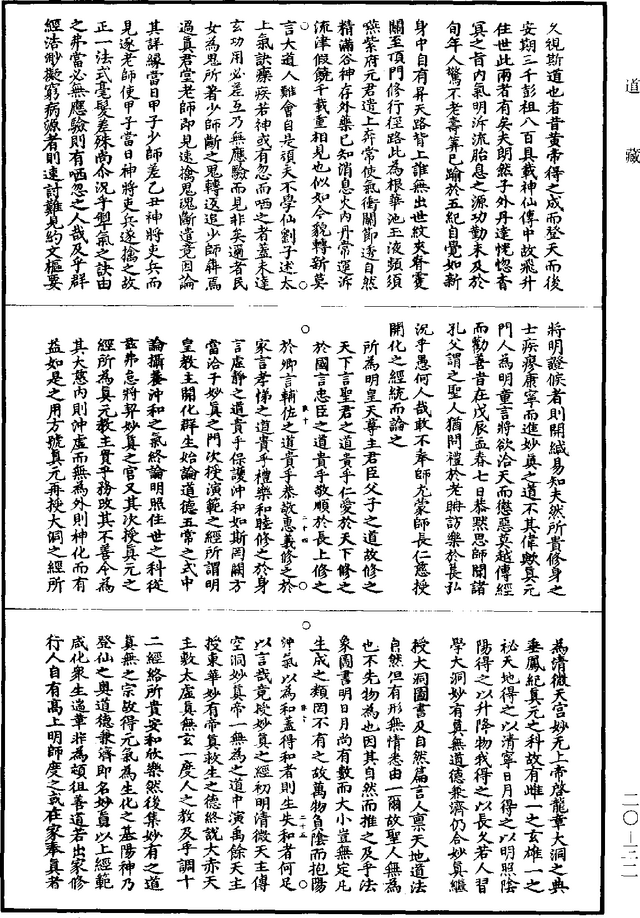 道藏
二〇—三一
久視斯道也者昔黄帝得之成而登天而後
安期三千彭祖八百具載神仙傳中故飛升
住世此兩者有矣夫朗然子外丹達恍惚杳
冥之首内氣明泝流胎息之源功勤未及於
旬年人驚不老壽筭已踰於五紀自覺如新
身中自有昇天路背上誰無出世紋夾脊雙
關至頂門修行徑路此為根華池玉液頻須
嚥紫府元君遣上奔常使氣衝關節透自然
精滿谷神存外藥已知消息火内丹常運泝
流津假饒千載重相見也似如今貌轉新莫
言大道人難會自是頑夫不學仙劉子述太
上氣訣療疾若神或有忽而哂之者蓋未達
玄功用必差互乃無應驗而見非矣邇者民
女為鬼所著少師斷之鬼轉返追少師犇馬
過真君堂老師即見速擒鬼魂斷遣竟因論
其詳當日甲子少師差乙丑神將吏兵而
見逐老師使甲子當日神將吏兵遂擒之故
正一法式毫髮差殊尚介況乎製氣之訣由
之弗當必無應驗則有哂怨之人哉及乎群
經浩渺擬窮病源者則速討難見約文樞要
將明證候者則開緘易知夫然所貴修身之
士疾瘳康寧而進妙真之道不其偉歟真元
門人為明童言將欲洽天而懲惡莫越傳經
而勸善昔在戊辰孟春七日恭黙思師聞諸
孔父謂之聖人猶問禮於老聃訪樂於萇弘
況乎愚何人哉敢不奉師尤蒙師長仁慈授
開化之經統而論之
所為明皇天尊主君臣父子之道故修之
天下言聖君之道貴乎仁愛於天下修之
於國言忠臣之道貴乎敬順於長上修之
於鄉言輔佐之道貴乎恭敬惠義修之於
家言孝悌之道貴乎禮樂和睦修之於身
言虛静之道貴乎保護沖和如斯罔闕方
當洽子妙真之門次授演範之經所謂明
皇教主開化群生始論道德五常之式中
論攝養沖和之氣終論明照住世之科從
兹弗怠將昇妙真之官又其次授真元之
經所為真元教主貴乎務改其不善令為
其大慈内則沖虛而無為外則神化而有
益如是之用方號真元再授大洞之經所
為清微天宫妙无上帝啓龍章大洞之典
垂鳳紀真元之科故有雌一之玄雄一之
祕天地得之以清寧日月得之以明照陰
陽得之以升降物我得之以長久若人習
學大洞妙有真無道德兼濟仍合妙真繼
授大洞圖書及自然篇言人禀天地道法
自然但有形無情悉由一爾故聖人無為
也不先物為也因其自然而推之及乎法
象圖書明日月尚有數而大小豈無定凡
生成之類罔不有之故萬物負陰而抱陽
沖氣以為和蓋得和者則生失和者何足
以言哉竟授妙真之經初明清微天主傳
空洞妙真帝一無為之道中演禹餘天主
授東華妙有帝真救生之德終説大赤天
主敷太虛真無玄一度人之教及乎調十
二經絡所貴安和欣樂然後集妙有之道
真無之宗故得元氣為生化之基陽神乃
登仙之奥道德兼濟即名妙真以上經範
咸化衆生遠華非為頓徂善道若出家修
行人自有高上明師度之或在家奉真者